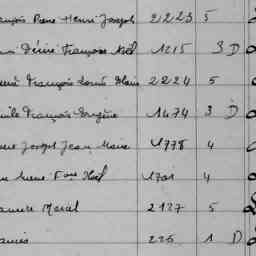 François Pierre Henri Joseph 2223 5
Désiré François Noël 1215 3 D
François Louis Marie 2224 5
Emile François Eugène 1474 3 D
Joseph Jean Marie 1778 4
Pierre Fois Noël 1701 4
Maurice Marcel 2137 5
226 1 D